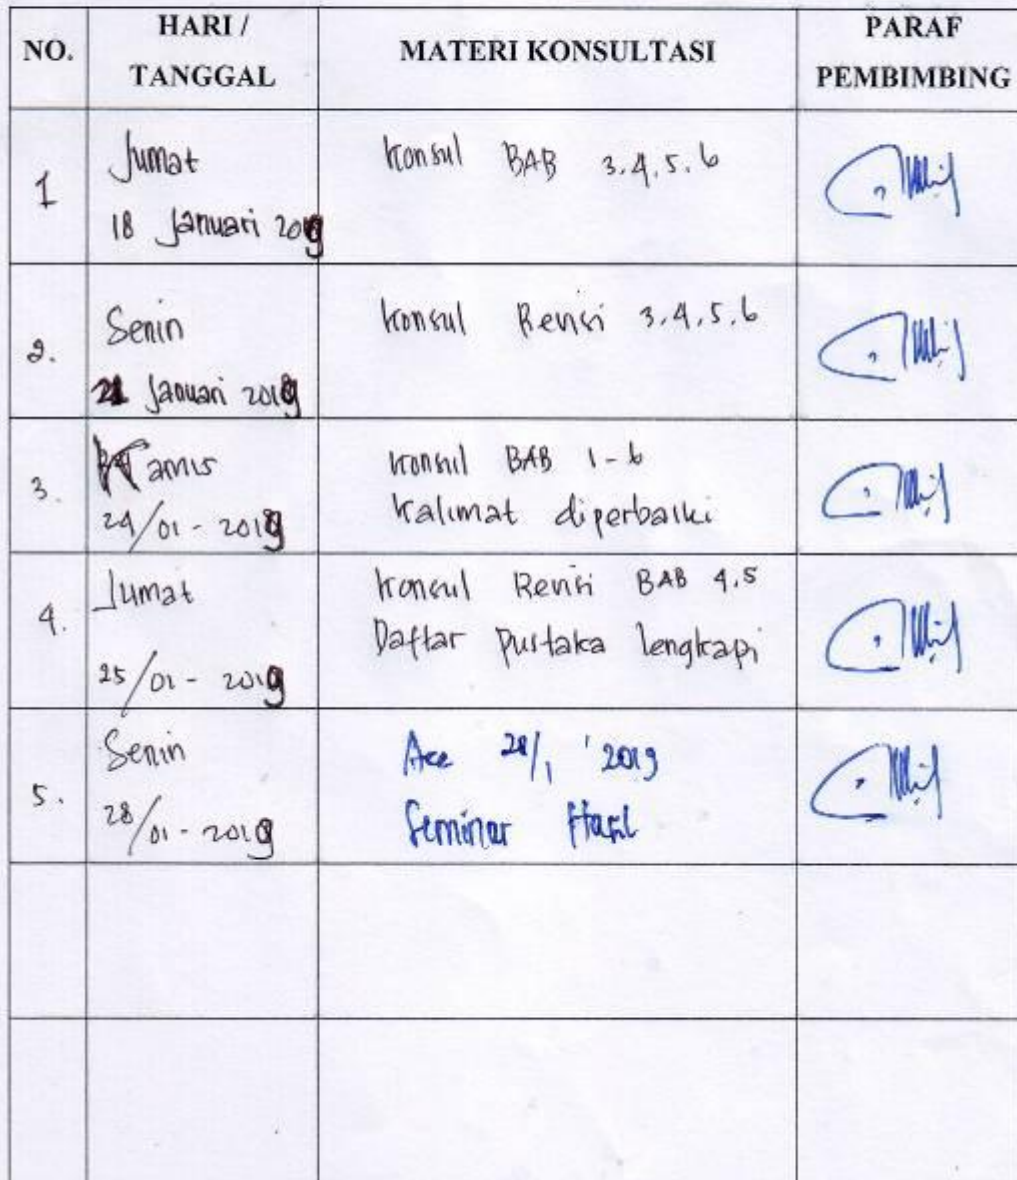 NO.
HARI / TANGGAL
MATERI KONSULTASI
PARAF PEMBIMBING
1
Jumat
18 Januari 2019
Konsul BAB 3.4.5.6
2.
Senin
21 Januari 2019
Konsul Revisi 3.4.5.6
3.
Kamis
24/01 - 2019
Konsul BAB 1-6
Kalimat diperbaiki
4.
Jumat
25/01 - 2019
Konsul Revisi BAB 4.5
Daftar Pustaka lengkapi
5.
Senin
28/01 - 2019
Acc 28/1 '2019
Seminar Hasil